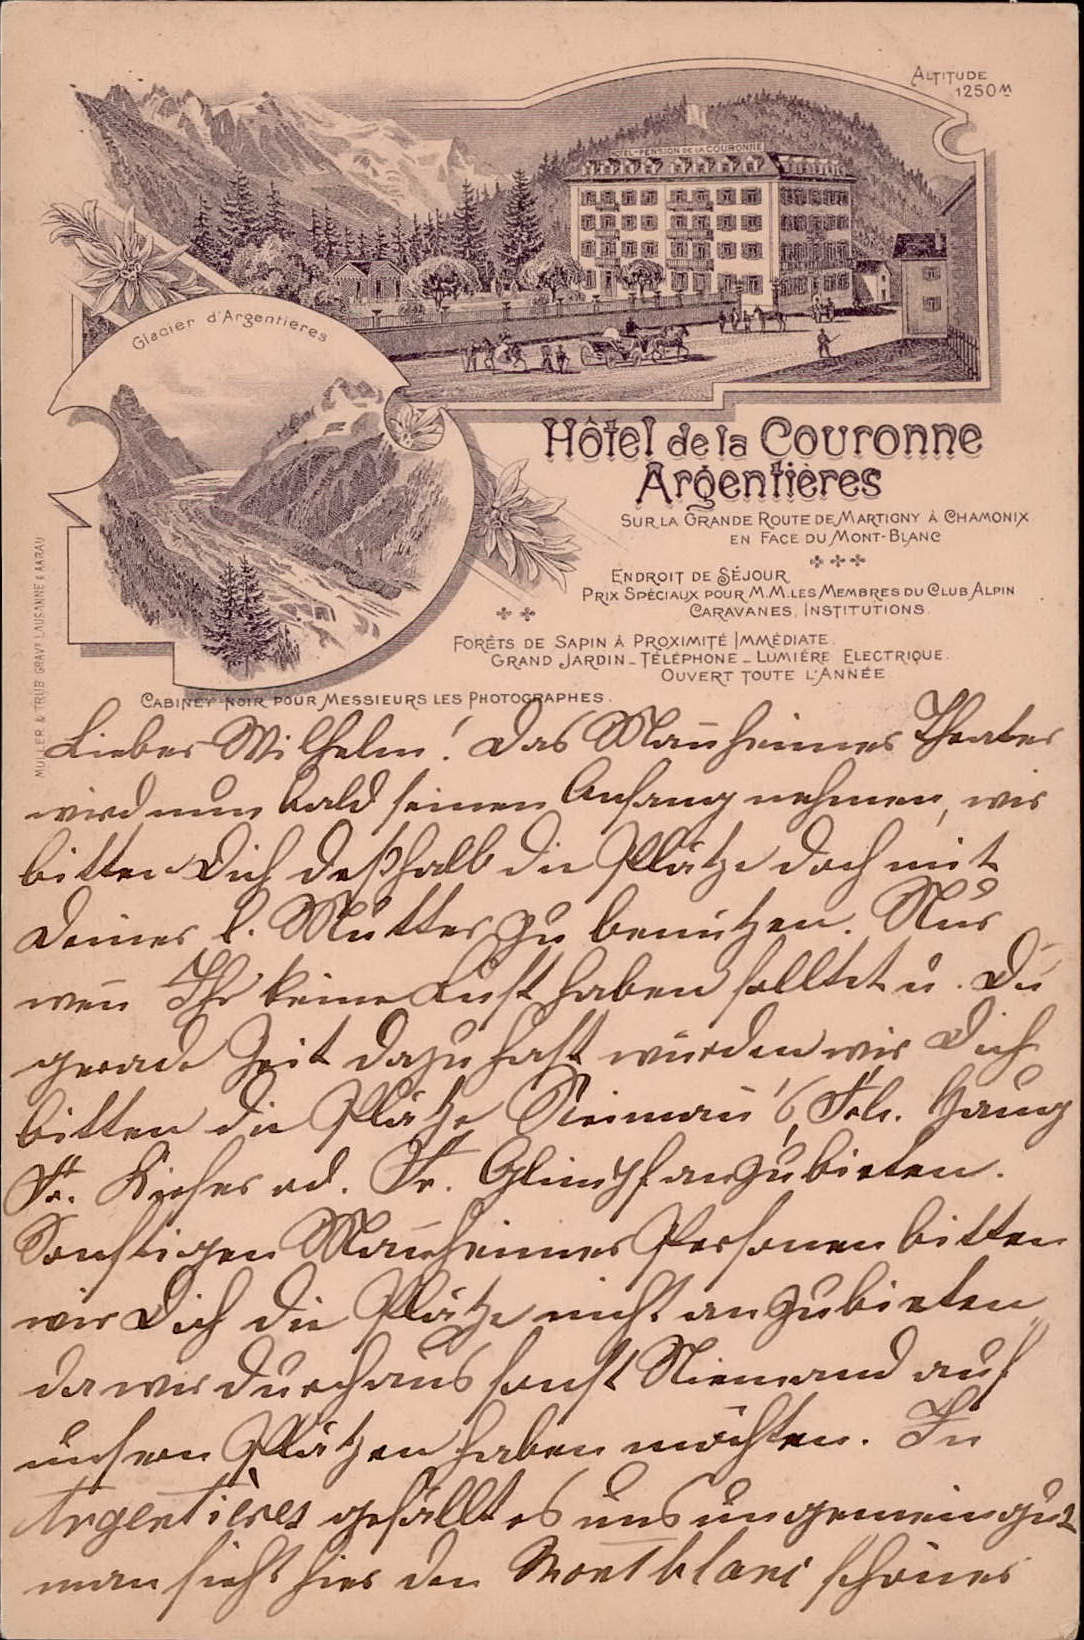 ALTITUDE
1250 M
HÔTEL-PENSION DE LA COURONNE
Glacier d'Argentières
Hôtel de la Couronne
Argentières
SUR LA GRANDE ROUTE DE MARTIGNY À CHAMONIX
EN FACE DU MONT-BLANC
ENDROIT DE SÉJOUR
PRIX SPÉCIAUX POUR M.M. LES MEMBRES DU CLUB ALPIN
CARAVANES, INSTITUTIONS.
FORÊTS DE SAPIN À PROXIMITÉ IMMÉDIATE.
GRAND JARDIN _ TÉLÉPHONE _ LUMIÈRE ELECTRIQUE.
OUVERT TOUTE L'ANNÉE
CABINET NOIR POUR MESSIEURS LES PHOTOGRAPHES.
MULLER & TRUB GRAV. LAUSANNE & AARAU
Lieber Wilhelm! Das Man̄heimer Theater
wird nun bald seinen Anfang nehmen, wir
bitten Dich deßhalb die Plätze doch mit
Deiner l. Mutter zu benützen. Nur
wen̄ Ihr keine Lust haben solltet u. Du
gerade Zeit dazu hast würden wir Dich
bitten die Plätze Frl. Haug
Fr. od. Fr. anzubieten.
Sonstigen Man̄heimer Personen bitten
wir Dich die Plätze nicht anzubieten,
da wir durchaus sonst Niemand auf
unseren Plätzen haben möchten. In
Argentières gefällt es uns ungemein gut
man sieht hier den Montblanc schöner